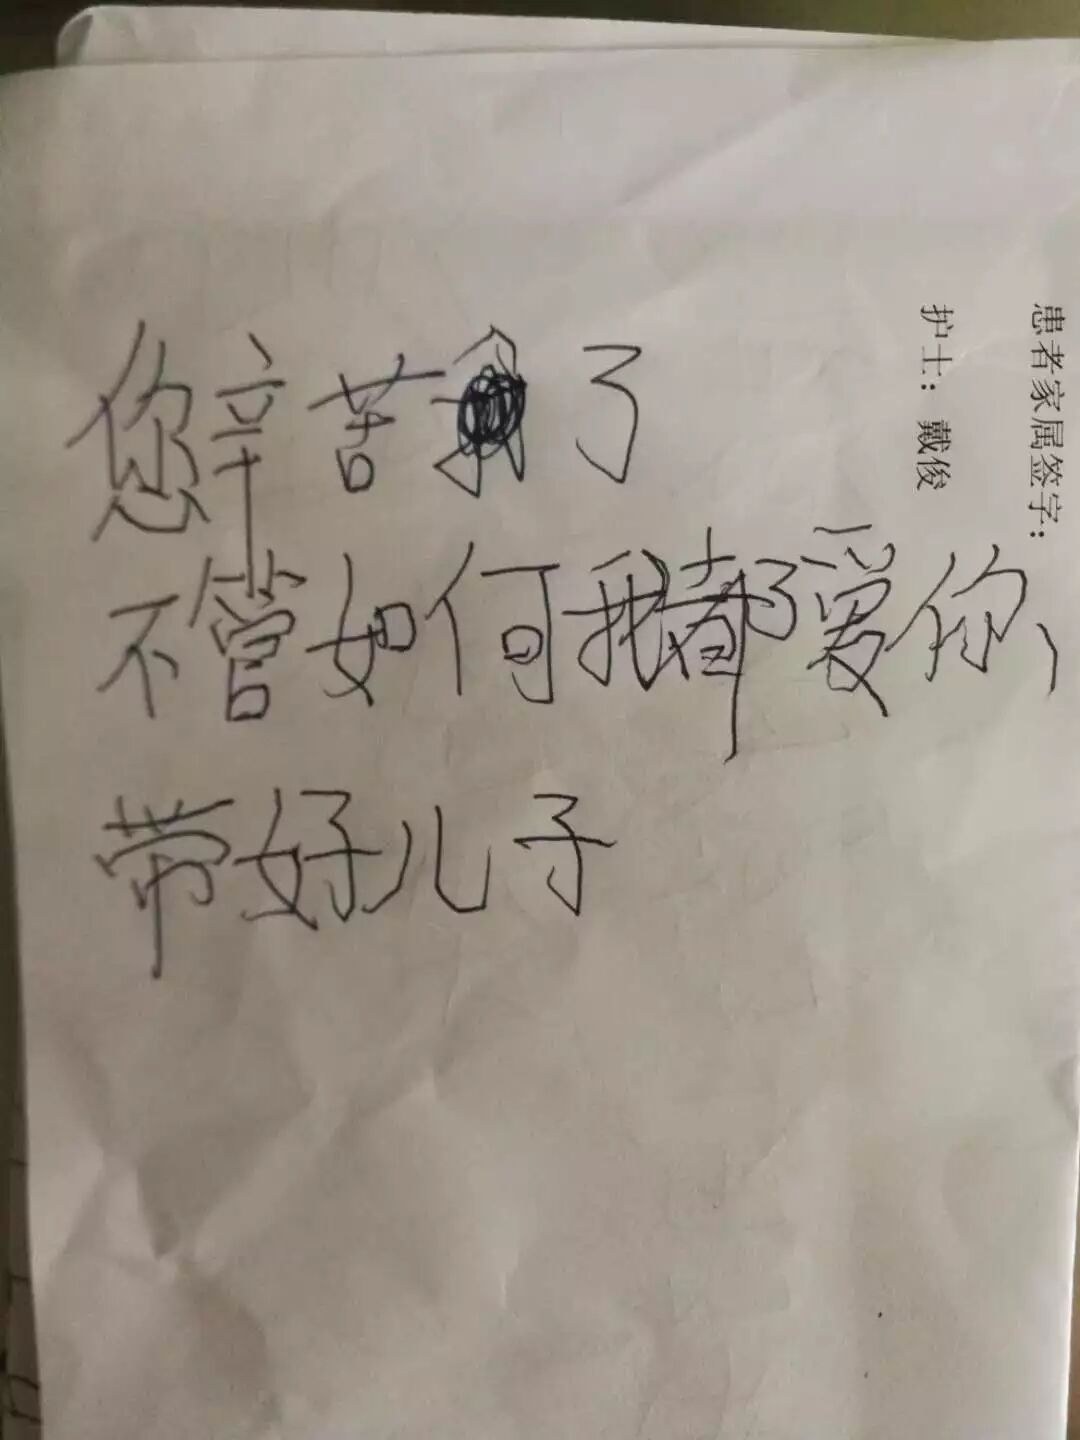 您辛苦了
不管如何我都爱你、
带好儿子
患者家属签字：
护士：戴俊